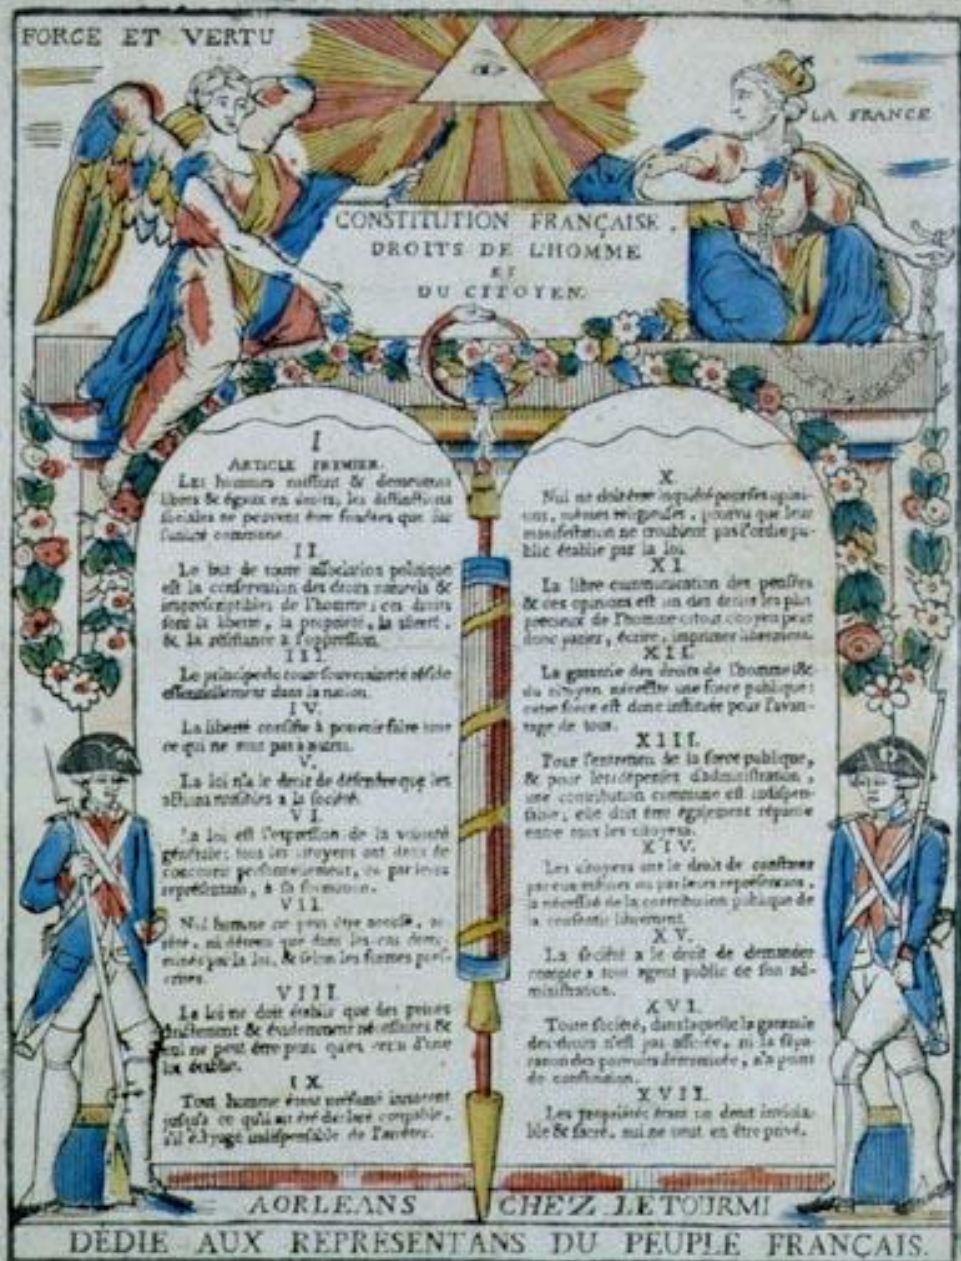 FORCE ET VERTU
LA FRANCE
CONSTITUTION FRANÇAISE,
DROITS DE L'HOMME
ET
DU CITOYEN.
I
ARTICLE PREMIER.
Les hommes naissent & demeurent
libres & égaux en droits, les distinctions
sociales ne peuvent être fondées que sur
l'utilité commune
II
Le but de toute association politique
est la conservation des droits naturels &
imprescriptibles de l'homme; ces droits
sont la liberté, la propriété,
& la résistance à l'oppression.
III
Le principe de toute souveraineté réside
essentiellement dans la nation.
IV.
La liberté consiste à pouvoir faire tout
ce qui ne nuit pas à autrui.
V.
La loi n'a le droit de défendre que les
actions nuisibles a la société.
VI.
La loi est l'expression de la volonté
générale; tous les citoyens ont droit de
concourir personnellement, ou par leurs
représentans, à sa formation.
VII.
Nul homme ne peut être accusé,
ni détenu que dans les cas
minés par la loi, & selon les formes
VIII
La loi ne doit établir que des peines
strictement & évidemment nécessaires &
nul ne peut être puni
loi établie.
IX
Tout homme étant présumé innocent
jusqu'à ce qu'il ait été déclaré coupable,
s'il est jugé indispensable de l'arrêter.
X.
Nul ne doit être inquiété pour ses opini-
ons, mêmes religieuses, pourvu que leur
manifestation ne troublent pas l'ordre pu-
blic établie par la loi.
XI.
La libre communication des pensées
& des opinions est un des droits les plus
précieux de l'homme citoyen peut
donc parler, écrire, imprimer librement.
XII.
La garantie des droits de l'homme &
du citoyen nécessite une force publique;
cette force est donc instituée pour l'avan-
tage de tous.
XIII.
Pour l'entretien de la force publique,
& pour les dépenses d'administration,
une contribution commune est indispen-
sable; elle doit être également répartie
entre tous les citoyens.
XIV.
Les citoyens ont le droit de constater
par eux mêmes ou par leurs représentans,
la nécessité de la contribution publique de
la consentir librement.
XV.
La société a le droit de demander
compte a tout agent public de son ad-
ministration.
XVI.
Toute société, dans laquelle la garantie
des droits n'est pas assurée, ni la sépa-
ration des pouvoirs déterminée, n'a point
de constitution.
XVII.
Les propriétés étant un droit inviola-
ble & sacré, nul ne peut en être privé.
A ORLEANS CHEZ LETOURMI
DÉDIE AUX REPRESENTANS DU PEUPLE FRANÇAIS.